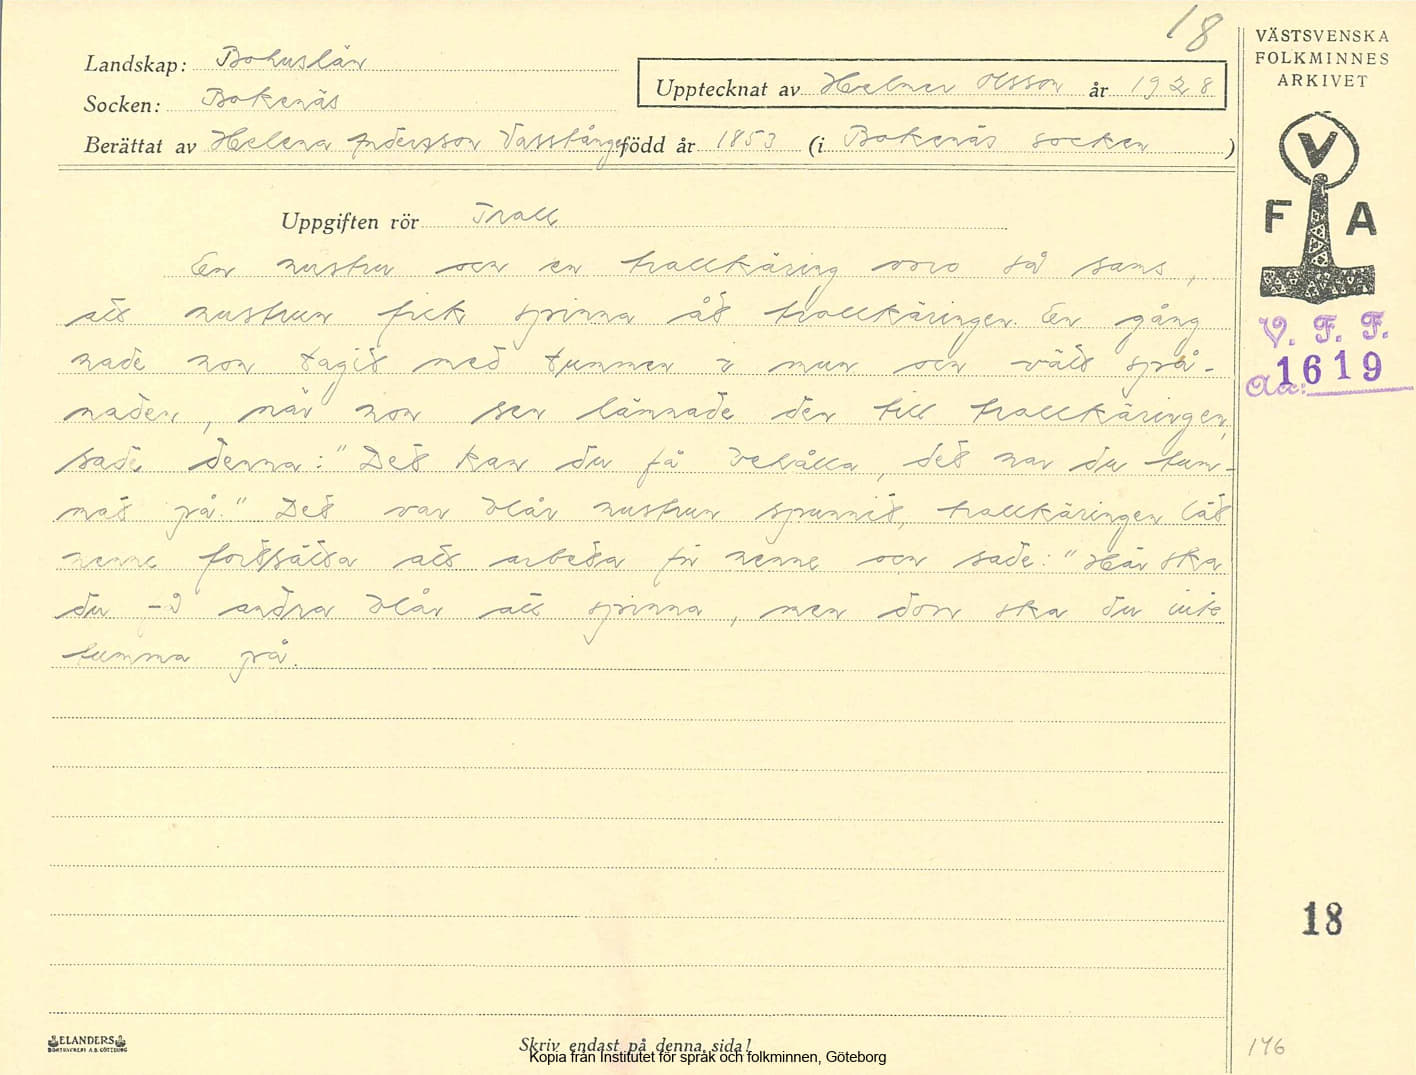 18
Landskap: Bohuslän
Socken: Bokenäs
Upptecknat av Helmer Olsson år 1928
Berättat av Helena Andersson Vasstången född år 1853 (i Bokenäs socken)
Uppgiften rör Troll
En hustru och en trollkäring voro så sams,
att hustrun fick spinna åt trollkäringen. En gång
hade hon tagit med tummen i mun och vätt spå-
naden, när hon sen lämnade den till trollkäringen,
sade denna: "Det kan du få behålla, det har du tum-
mat på." Det var blår hustrun spunnit, trollkäringen lät
henne fortsätta att arbeta för henne och sade: "Här ska
du få andra blår att spinna, men dom ska du inte
tumma på.
VÄSTSVENSKA
FOLKMINNES
ARKIVET
V
F A
V. F. F.
Aa: 1619
18
146
ELANDERS
BOKTRYCKERI A.B. GÖTEBORG
Skriv endast på denna sida!
Kopia från Institutet för språk och folkminnen, Göteborg